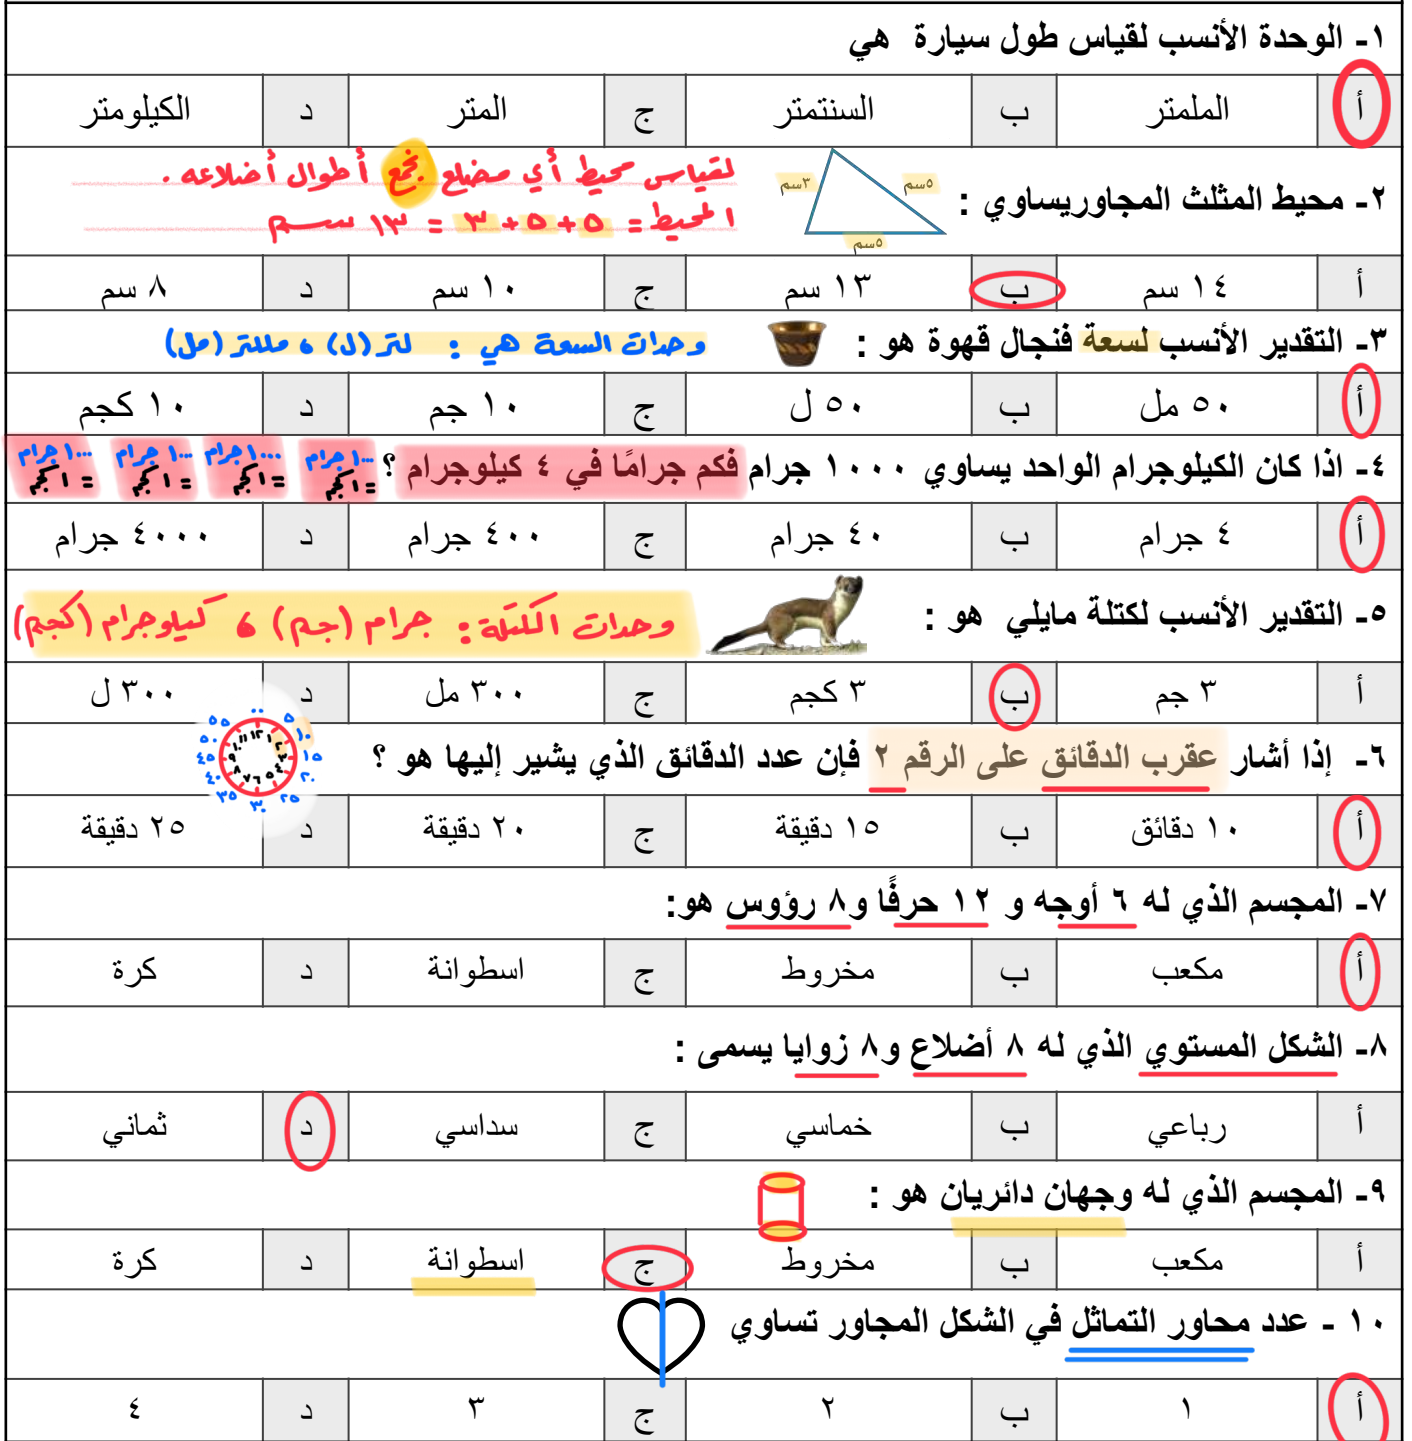 ١- الوحدة الأنسب لقياس طول سيارة هي
أ الملمتر ب السنتمتر ج المتر د الكيلومتر
لقياس محيط أي مضلع نجمع أطوال أضلاعه .
٢- محيط المثلث المجاوريساوي : ٥سم ٣سم ٥سم
المحيط = ٥ + ٥ + ٣ = ١٣ سم
أ ١٤ سم ب ١٣ سم ج ١٠ سم د ٨ سم
٣- التقدير الأنسب لسعة فنجال قهوة هو : وحدات السعة هي : لتر (ل) ، مللتر (مل)
أ ٥٠ مل ب ٥٠ ل ج ١٠ جم د ١٠ كجم
٤- اذا كان الكيلوجرام الواحد يساوي ١٠٠٠ جرام فكم جرامًا في ٤ كيلوجرام ؟
١٠٠٠ جرام ١٠٠٠ جرام ١٠٠٠ جرام ١٠٠٠ جرام
= ١ كجم = ١ كجم = ١ كجم = ١ كجم
أ ٤ جرام ب ٤٠ جرام ج ٤٠٠ جرام د ٤٠٠٠ جرام
٥- التقدير الأنسب لكتلة مايلي هو : وحدات الكتلة : جرام (جم) ، كيلوجرام (كجم)
أ ٣ جم ب ٣ كجم ج ٣٠٠ مل د ٣٠٠ ل
٦- إذا أشار عقرب الدقائق على الرقم ٢ فإن عدد الدقائق الذي يشير إليها هو ؟
٠٠ ٥ ١٠ ١٥ ٢٠ ٢٥ ٣٠ ٣٥ ٤٠ ٤٥ ٥٠ ٥٥
١٢ ١ ٢ ٣ ٤ ٥ ٦ ٧ ٨ ٩ ١٠ ١١
أ ١٠ دقائق ب ١٥ دقيقة ج ٢٠ دقيقة د ٢٥ دقيقة
٧- المجسم الذي له ٦ أوجه و ١٢ حرفًا و٨ رؤوس هو:
أ مكعب ب مخروط ج اسطوانة د كرة
٨- الشكل المستوي الذي له ٨ أضلاع و٨ زوايا يسمى :
أ رباعي ب خماسي ج سداسي د ثماني
٩- المجسم الذي له وجهان دائريان هو :
أ مكعب ب مخروط ج اسطوانة د كرة
١٠ - عدد محاور التماثل في الشكل المجاور تساوي
أ ١ ب ٢ ج ٣ د ٤